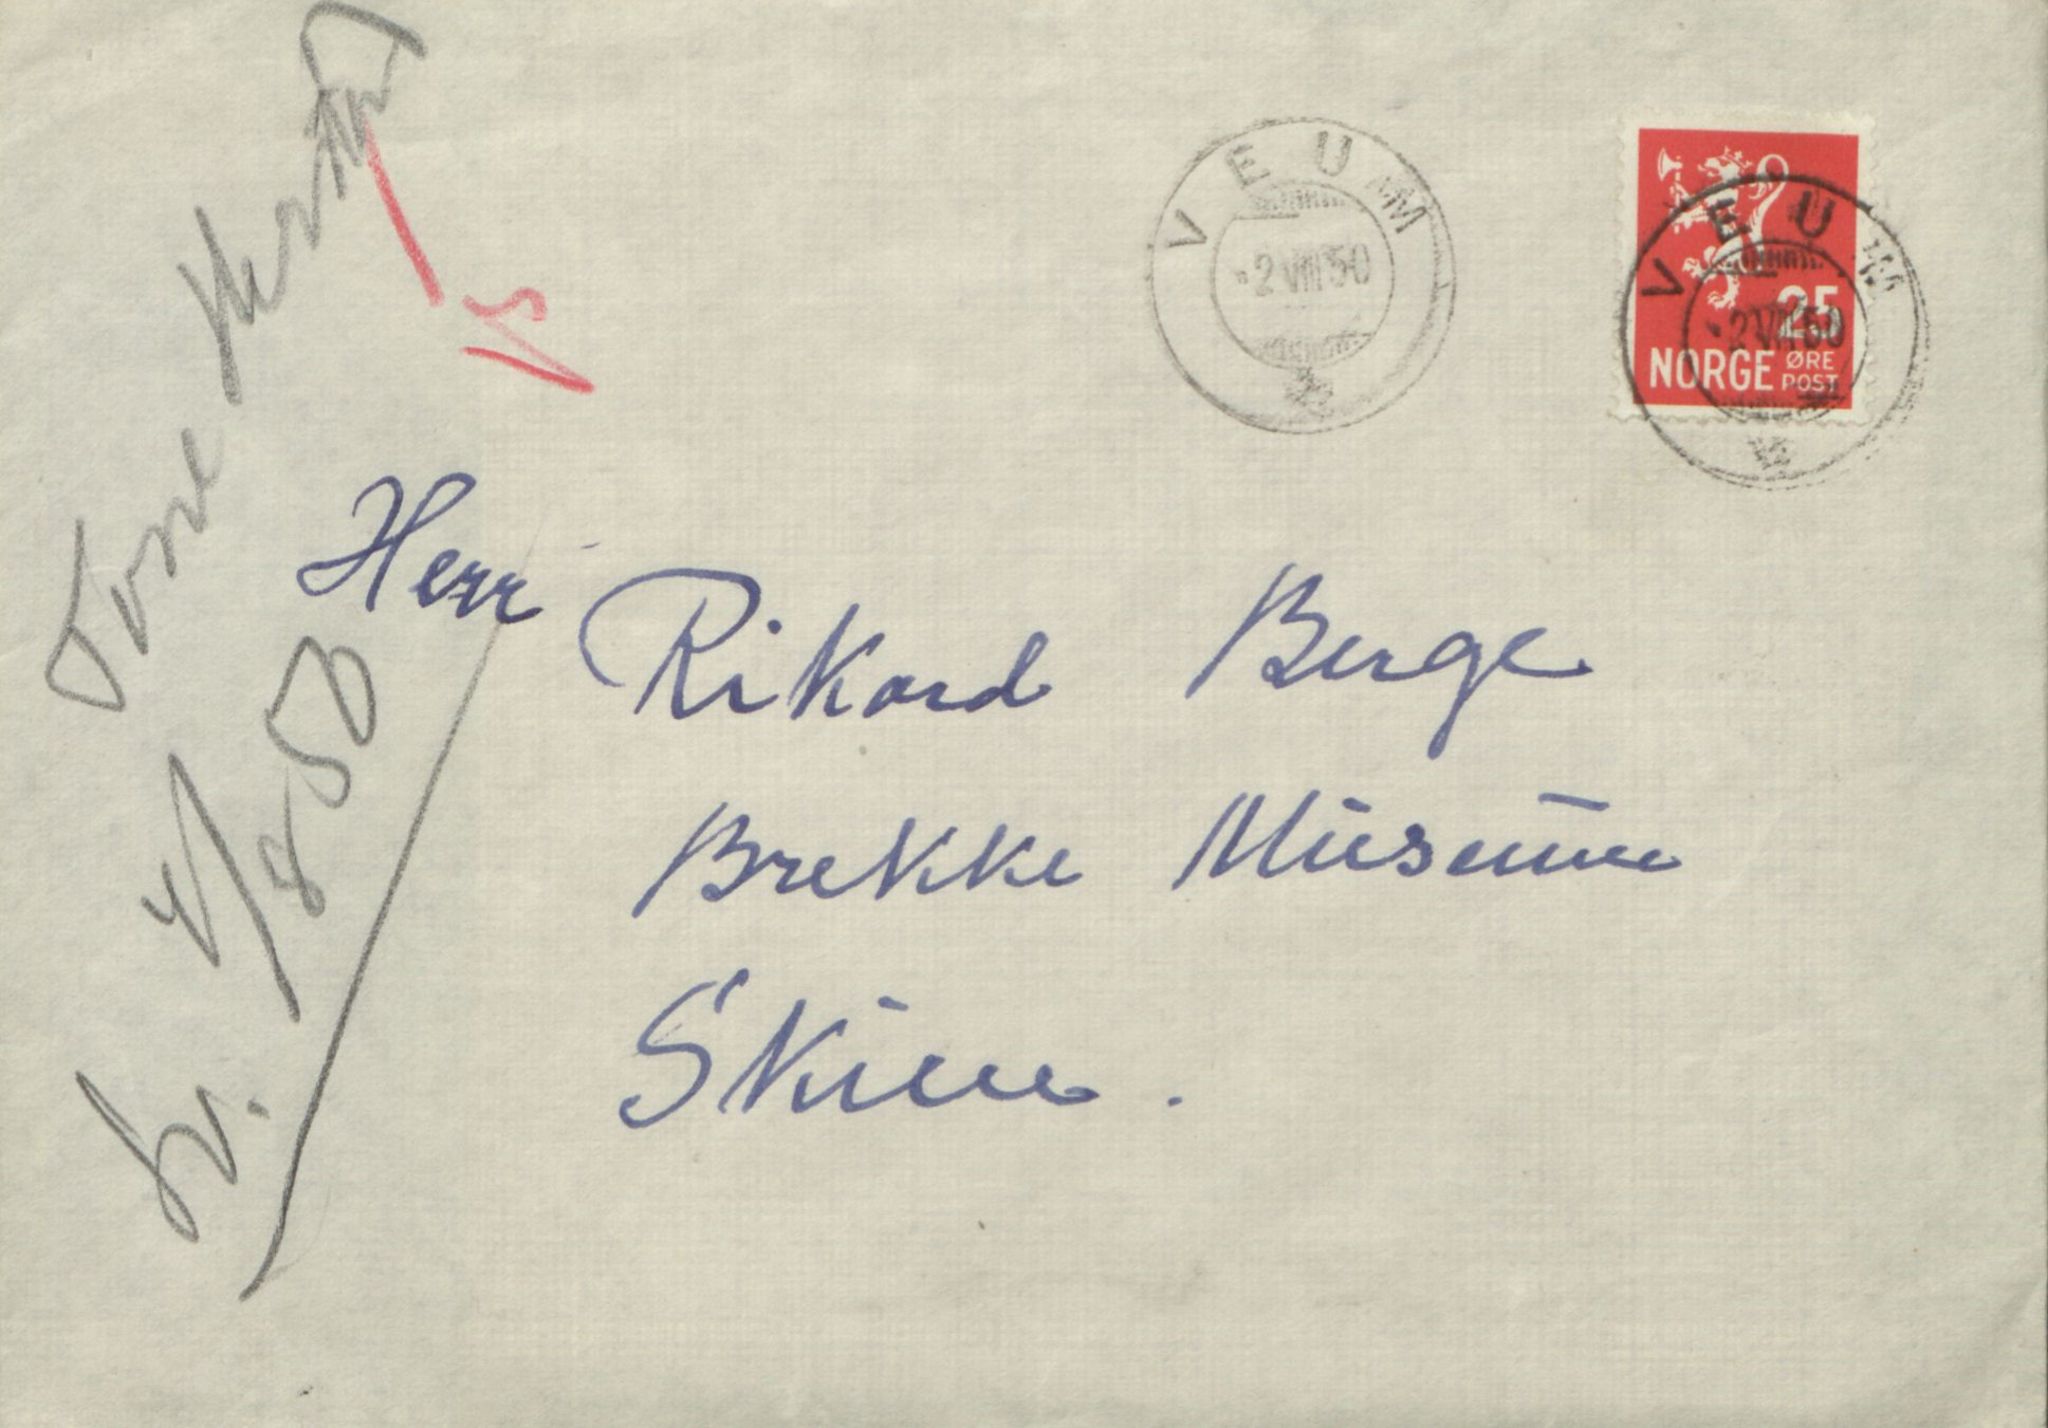 VEUM
-2 VIII 50
VEUM
-2 VIII 50
25
NORGE ØRE
POST
Tone
Sv. 4/8 50
Herr
Rikard Berge
Brekke Museum
Skien.